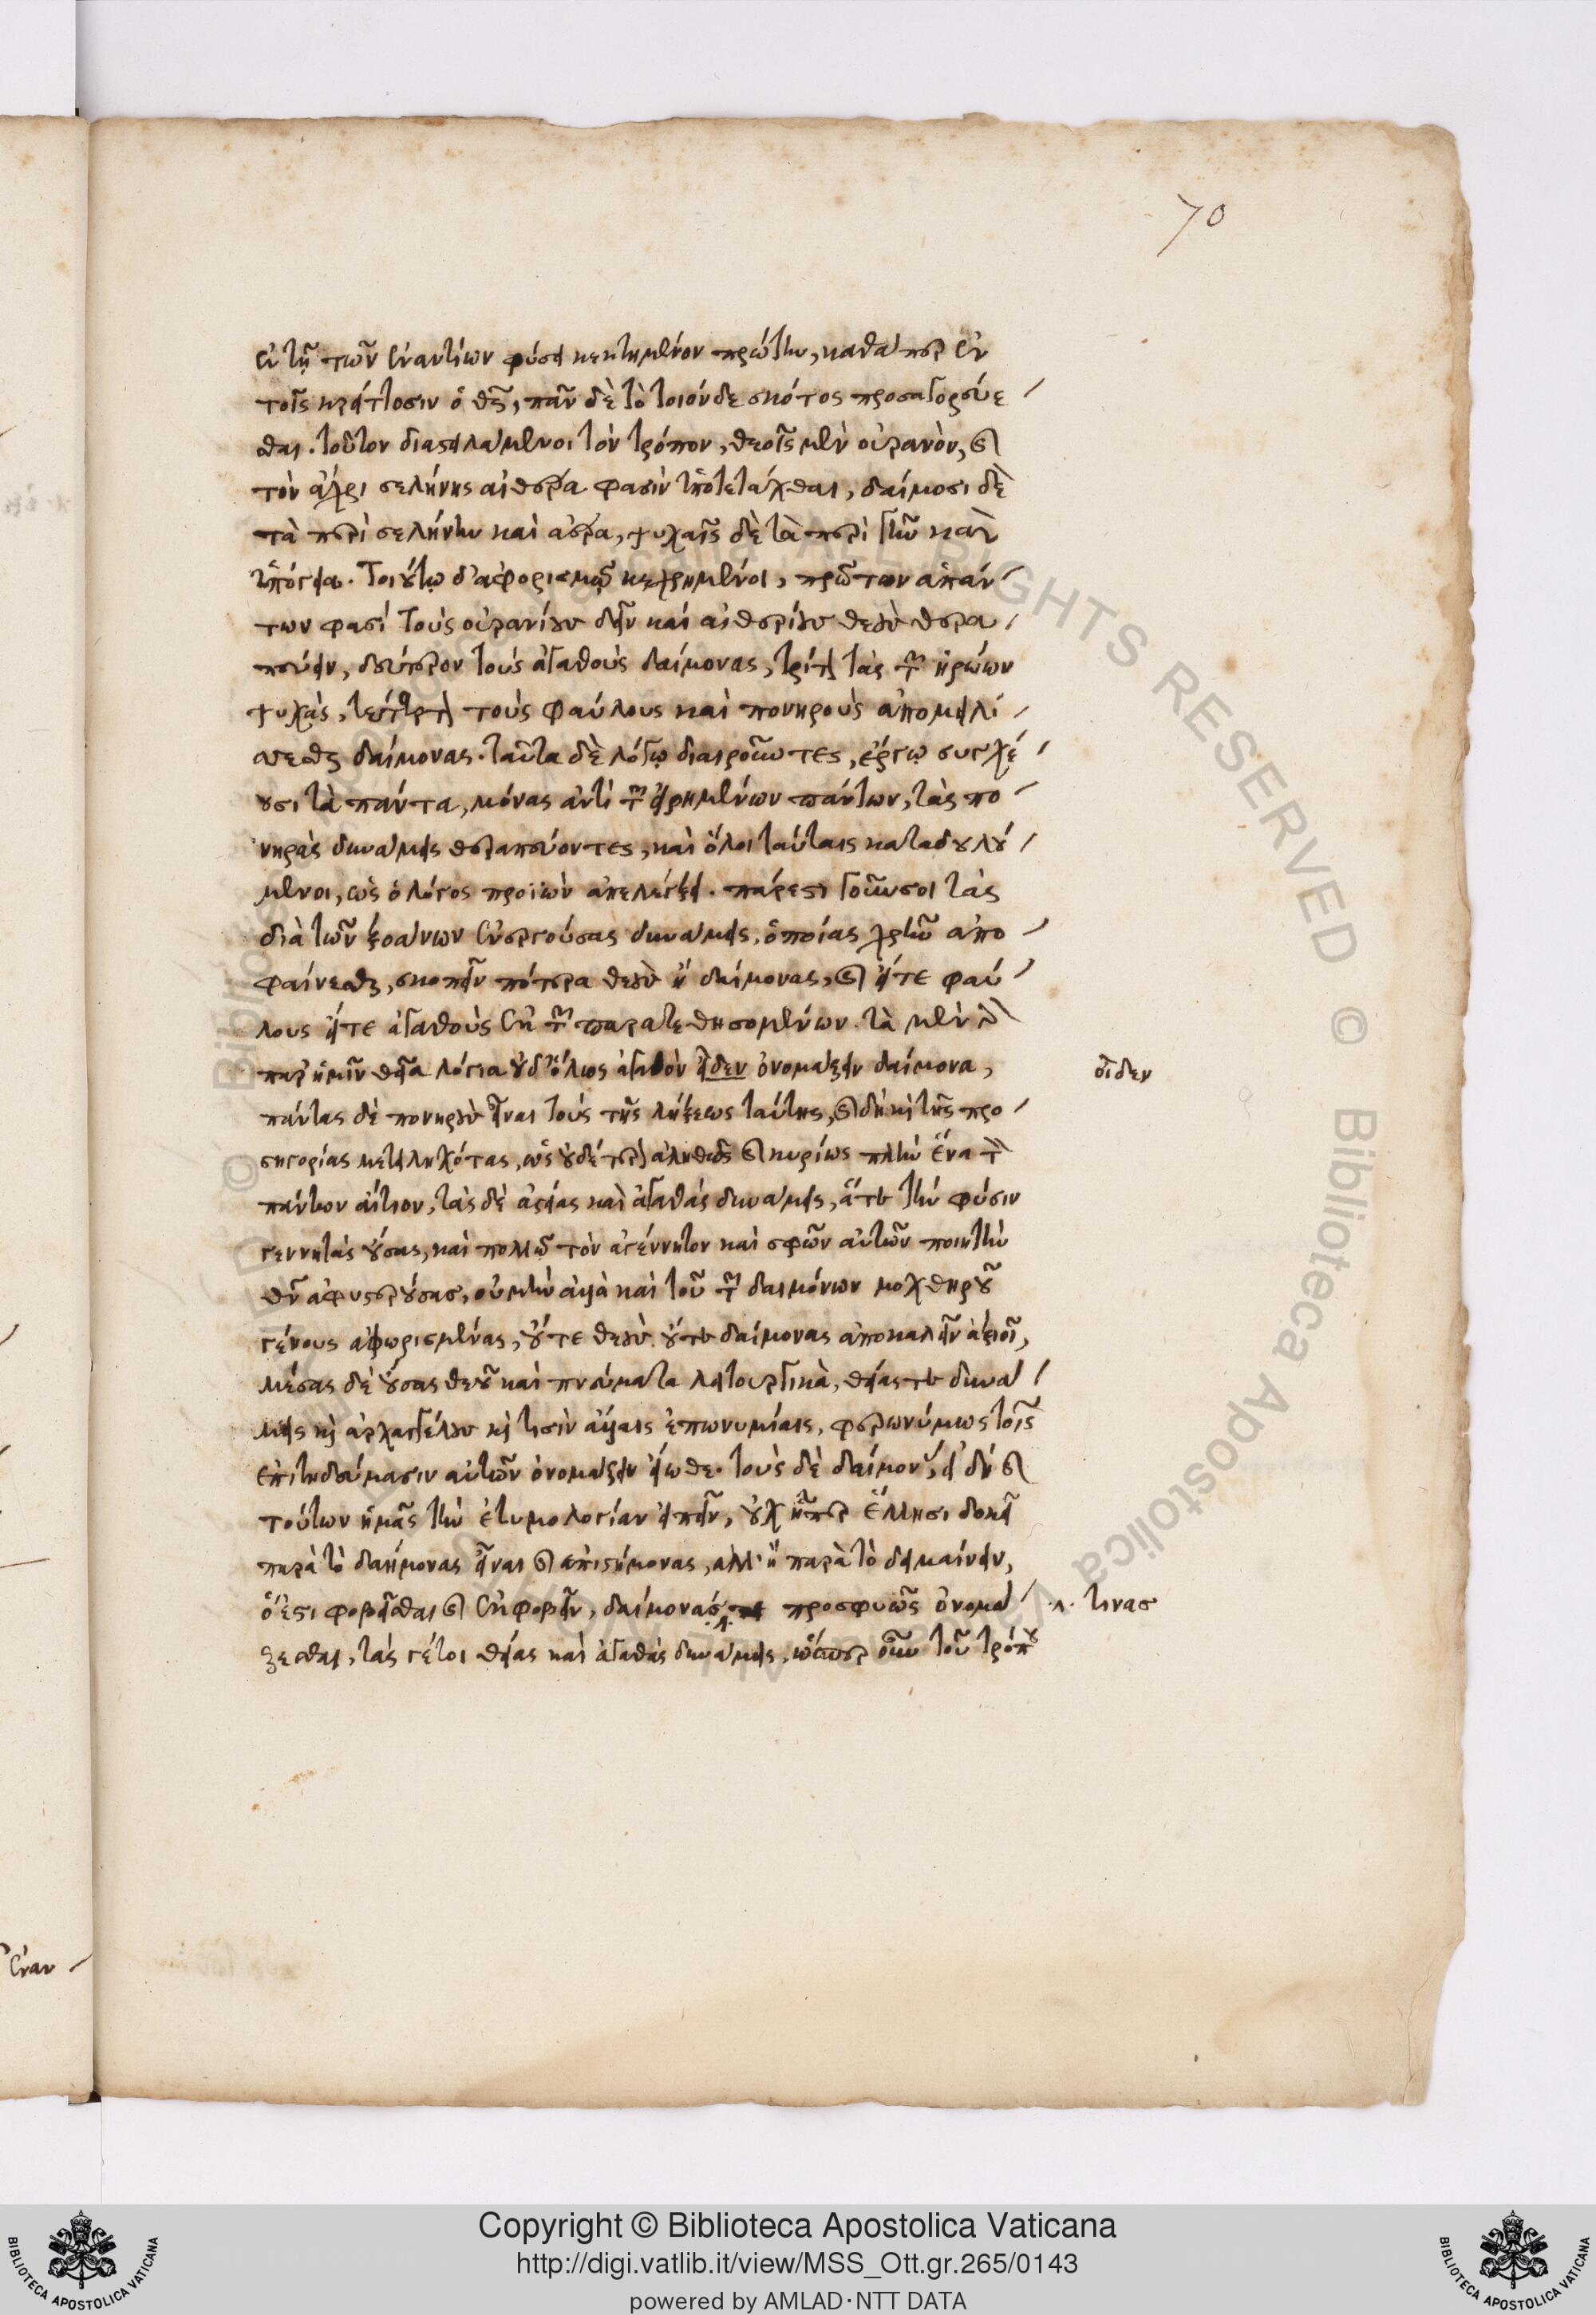 70
ἐν τῇ τῶν ἐναντίων φύσει κεκτημένον πρώτην, καθάπερ ἐν
τοῖς κράττοσιν ὁ θς, πᾶν δὲ τὸ τοιόνδε σκότος προσαγορεύε
σθαι. τοῦτον διαστειλάμενοι τὸν τρόπον, θεοῖς μὲν οὐρανὸν, καὶ
τὸν ἄχρι σελήνης αἰθέρα φασὶν ὑποτετάχθαι, δαίμοσι δὲ
τὰ περὶ σελήνην καὶ ἀέρα, ψυχαῖς δὲ τὰ περὶ γῆν καὶ
ὑπόγεια. Τοιούτῳ δ' ἀφορισμῷ κεχρημένοι, πρῶτον ἁπάν
των φασὶ τοὺς οὐρανίους δεῖν καὶ αἰθερίους θεοὺς θερα
πεύειν, δεύτερον τοὺς ἀγαθοὺς δαίμονας, τρίτον τὰς τῶν ἡρώων
ψυχὰς, τέταρτον τοὺς φαύλους καὶ πονηροὺς ἀπομειλί
σσεσθαι δαίμονας. ταῦτα δὲ λόγῳ διαιροῦντες, ἔργῳ συγχέ
ουσι τὰ πάντα, μόνας ἀντὶ τῶν εἰρημένων πάντων, τὰς πο
νηρὰς δυνάμεις θεραπεύοντες, καὶ ὅλοι ταύταις καταδουλού
μενοι, ὡς ὁ λόγος προϊὼν ἀπελέγξει. πάρεστι γοῦν σοι τὰς
διὰ τῶν ξοάνων ἐνεργούσας δυνάμεις, ὁποίας χρὴν ἀπο
φαίνεσθαι, σκοπεῖν πότερα θεοὺς ἢ δαίμονας, καὶ εἴτε φαύ
λους εἴτε ἀγαθοὺς ἐκ τῶν παρατεθησομένων. τὰ μὲν γὰρ
παρ' ἡμῖν θεῖα λόγια οὐδ' ὅλως ἀγαθὸν εἶδεν ὀνομάζειν δαίμονα,
οἶδεν
πάντας δὲ πονηροὺς εἶναι τοὺς τῆς λήξεως ταύτης, καὶ δὴ καὶ τῆς προ
σηγορίας μετειληχότας, ὡς οὐδέτερον ἀληθῶς καὶ κυρίως πλὴν ἕνα τὸν
πάντων αἴτιον, τὰς δὲ ἀστείας καὶ ἀγαθὰς δυνάμεις, ἅτε τὴν φύσιν
γεννητὰς οὔσας, καὶ πολλῷ τὸν ἀγέννητον καὶ σφῶν αὐτῶν ποιητὴν
θν ἀφυστερούσας, οὐ μὴν ἀλλὰ καὶ τοῦ τῶν δαιμόνων μοχθηροῦ
γένους ἀφωρισμένας, οὔτε θεοὺς οὔτε δαίμονας ἀποκαλεῖν ἀξιοῖ,
μέσας δὲ οὔσας θεοῦ καὶ πνεύματα λειτουργικὰ, θείας τε δυνά
μεις καὶ ἀρχαγγέλους καὶ τισὶν ἄλλαις ἐπωνυμίαις, φερωνύμως τοῖς
ἐπιτηδεύμασιν αὐτῶν ὀνομάζειν εἴωθε. τοὺς δὲ δαίμονας, εἰ δὴ καὶ
τούτων ἡμᾶς τὴν ἐτυμολογίαν εἰπεῖν, οὐχ ᾗπερ ἕλλησι δοκεῖ
παρὰ τὸ δαήμονας εἶναι καὶ ἐπιστήμονας, ἀλλ' ἢ παρὰ τὸ δειμαίνειν,
ὅ ἐστι φοβεῖσθαι καὶ ἐκφοβεῖν, δαίμονάς προσφυῶς ὀνομά
.λ. τινας
ζεσθαι, τὰς γέτοι θείας καὶ ἀγαθὰς δυνάμεις, ὥσπερ οὖν τοῦ τρόπου
ἐναν
Copyright © Biblioteca Apostolica Vaticana
http://digi.vatlib.it/view/MSS_Ott.gr.265/0143
powered by AMLAD·NTT DATA